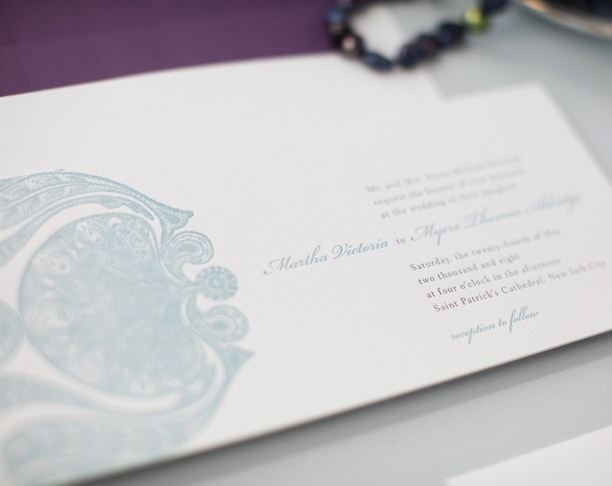 Mr. and Mrs.
request the honour of your presence
at the wedding of their daughter
Martha Victoria to Myers Thomas Aldridge
Saturday, the twenty-fourth of May
two thousand and eight
at four o'clock in the afternoon
Saint Patrick's Cathedral, New York City
reception to follow